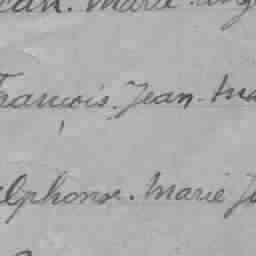 Jean. Marie
François. Jean. Ma
Alphonse. Marie Je